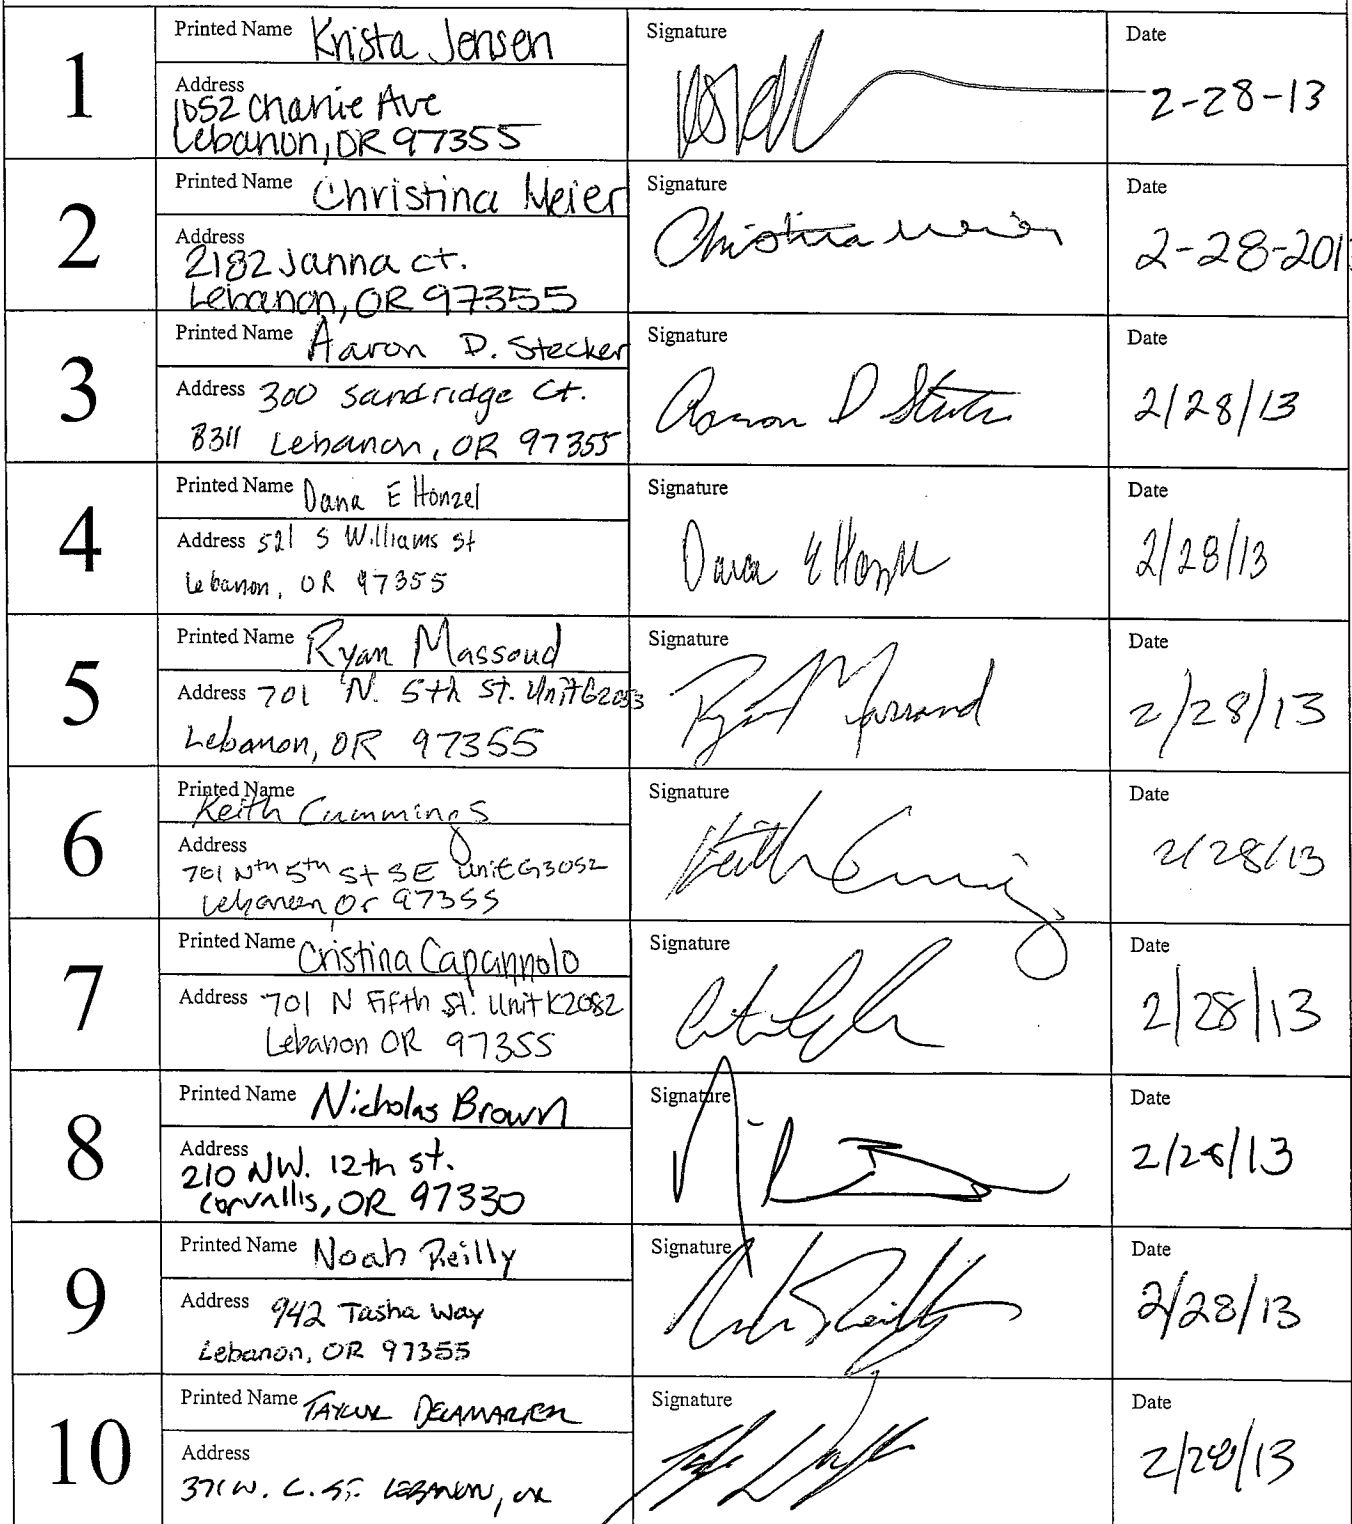 1
Printed Name Krista Jensen
Address
1052 Charlie Ave
Lebanon, OR 97355
Signature
Date
2-28-13
2
Printed Name Christina Meier
Address
2182 Janna ct.
Lebanon, OR 97355
Signature
Christina Meier
Date
2-28-201
3
Printed Name Aaron D. Stecker
Address 300 Sandridge Ct.
B311 Lebanon, OR 97355
Signature
Aaron D Stecker
Date
2/28/13
4
Printed Name Dana E Honzel
Address 521 S Williams St
Lebanon, OR 97355
Signature
Dana E Honzel
Date
2/28/13
5
Printed Name Ryan Massoud
Address 701 N. 5th St. Unit G2053
Lebanon, OR 97355
Signature
Ryan Massoud
Date
2/28/13
6
Printed Name
Keith Cummings
Address
701 Nth 5th St SE Unit G3052
Lebanon Or 97355
Signature
Keith Cummings
Date
2/28/13
7
Printed Name Cristina Capannolo
Address 701 N Fifth St. Unit K2082
Lebanon OR 97355
Signature
Date
2/28/13
8
Printed Name Nicholas Brown
Address
210 NW. 12th St.
Corvallis, OR 97330
Signature
Date
2/28/13
9
Printed Name Noah Reilly
Address 942 Tasha Way
Lebanon, OR 97355
Signature
Noah Reilly
Date
2/28/13
10
Printed Name TAYLOR DELAMARTER
Address
371 W. C. ST. LEBANON, OR
Signature
Date
2/28/13